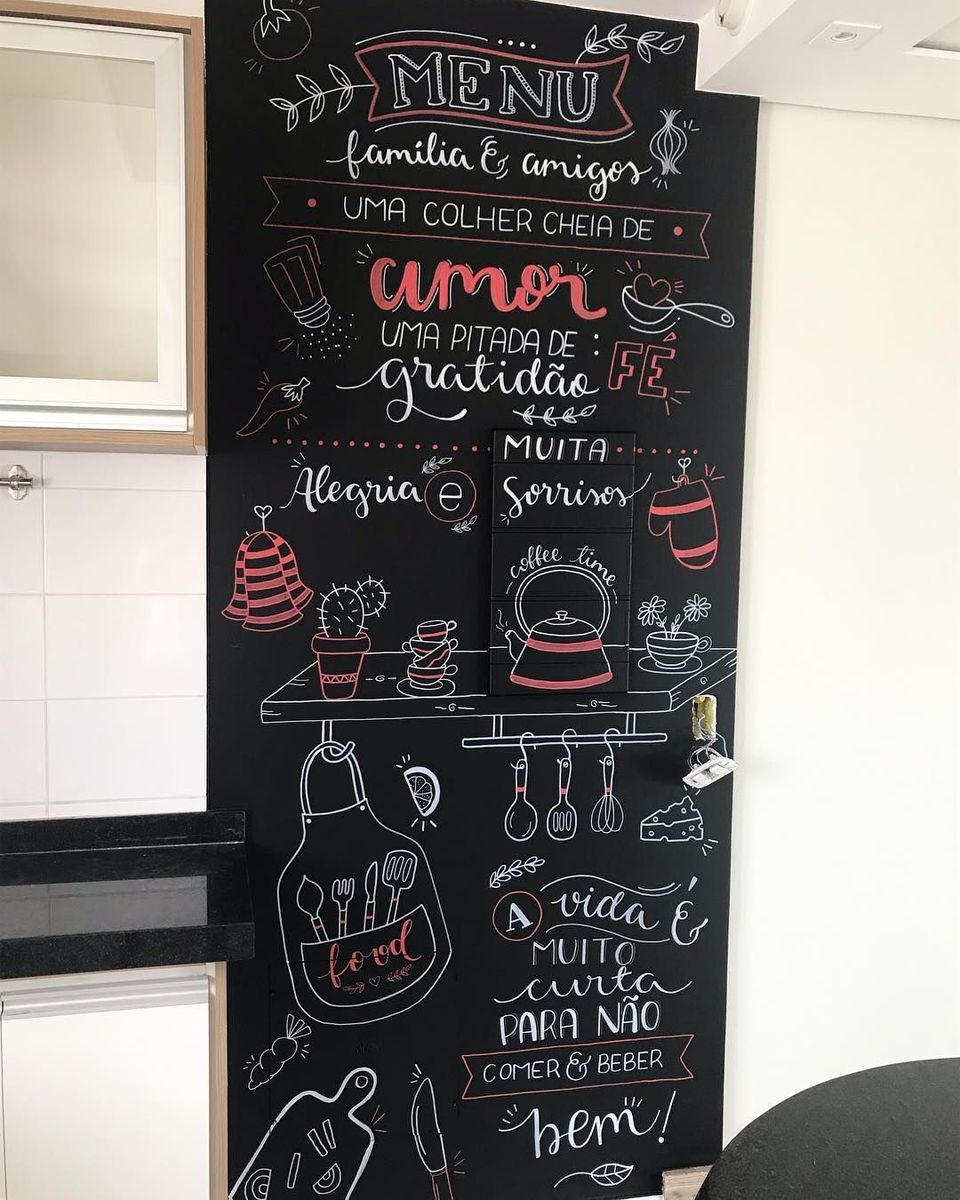 MENU
família & amigos
UMA COLHER CHEIA DE
amor
UMA PITADA DE :
gratidão
FÉ
MUITA
Alegria e
Sorrisos
coffee time
food
A vida É
MUITO
curta
PARA NÃO
COMER & BEBER
bem!